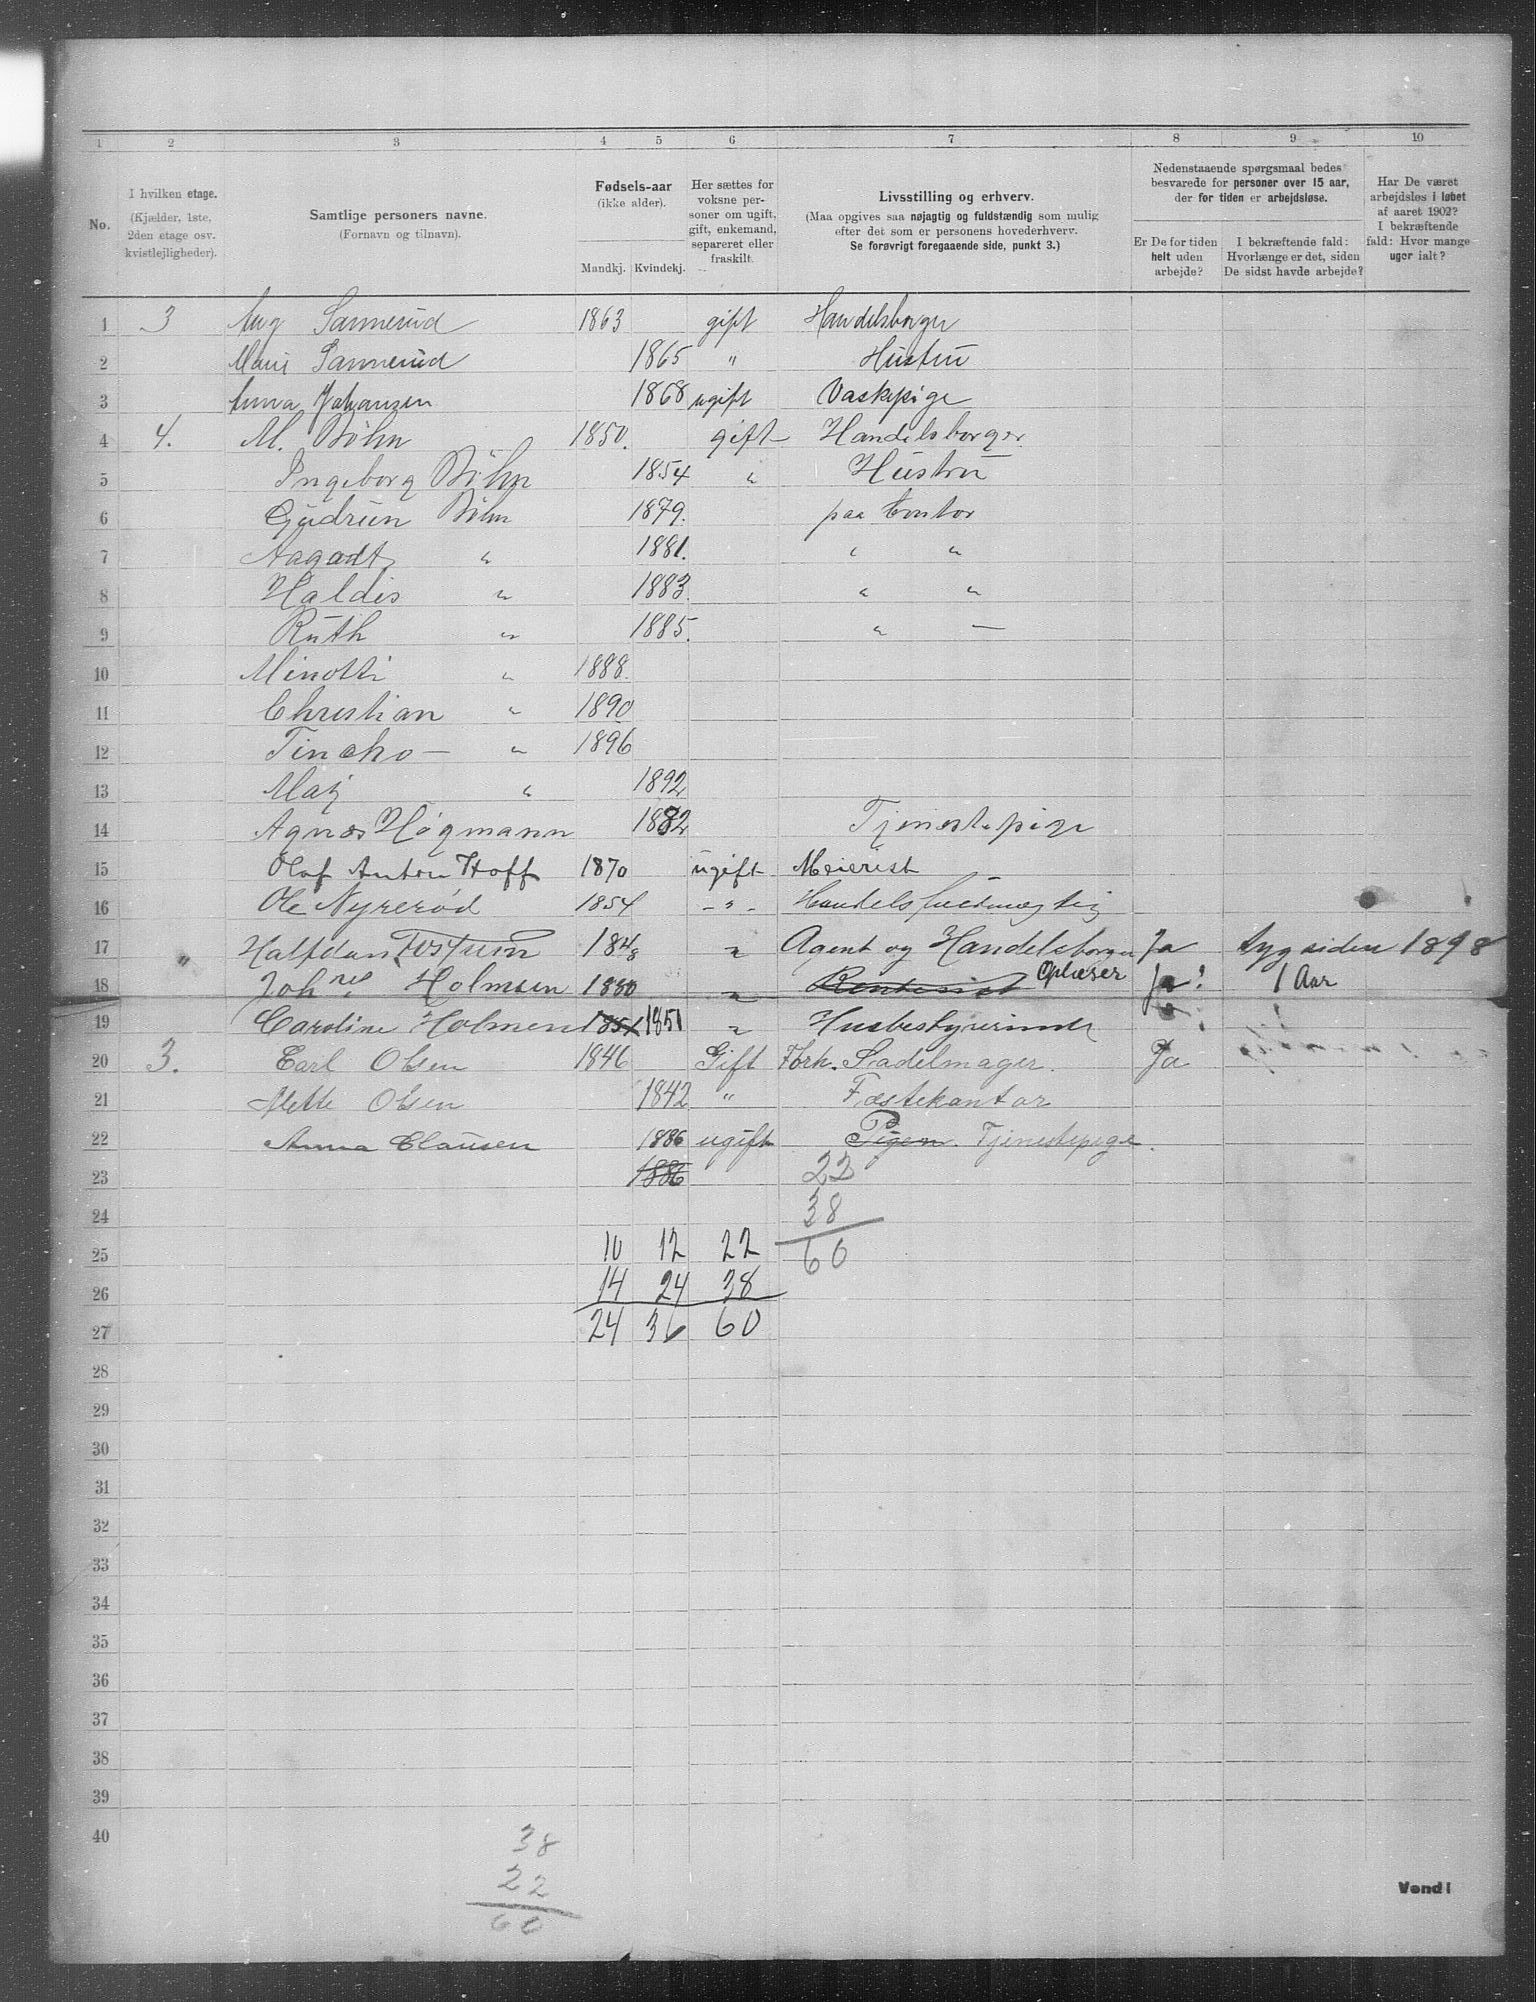 1 2 3 4 5 6 7 8 9 10
No.
I hvilken etage.
(Kjælder, 1ste,
2den etage osv.
kvistlejligheder).
Samtlige personers navne.
(Fornavn og tilnavn).
Fødsels-aar
(ikke alder).
Mandkj. Kvindekj.
Her sættes for
voksne per-
soner om ugift,
gift, enkemand,
separeret eller
fraskilt.
Livsstilling og erhverv.
(Maa opgives saa nøjagtig og fuldstændig som mulig
efter det som er personens hovederhverv.
Se forøvrigt foregaaende side, punkt 3.)
Nedenstaaende spørgsmaal bedes
besvarede for personer over 15 aar,
der for tiden er arbejdsløse.
Er De for tiden
helt uden
arbejde?
I bekræftende fald:
Hvorlænge er det, siden
De sidst havde arbejde?
Har De været
arbejdsløs i løbet
af aaret 1902?
I bekræftende
fald: Hvor mange
uger ialt?
1 3 Aug Sannerud 1863 gift Handelsborger
2 Marie Sannerud 1865 " Hustru
3 Anna Johansen 1868 ugift Vaskepige
4 4. M. Böhn 1850. gift Handelsborger
5 Ingeborg Böhn 1854 " Hustru
6 Gudrun Böhn 1879. paa Contor
7 Aagodt " 1881. " "
8 Haldis " 1883. " "
9 Ruth " 1885. " —
10 Minotti " 1888.
11 Christian " 1890
12 Tincho — " 1896
13 Maj " 1892
14 Agnes Högmann 1882 Tjenestepige
15 Olaf Anton Hoff 1870 ugift Meierist
16 Ole Nyrerød 1854 - " - Handelsfuldmægtig
17 " Halfdan Tostrum 1848 " Agent og Handelsborger Ja syg siden 1898
18 Johnes Holmsen 1880 " Rentenist Oplæser Ja? 1 Aar
19 Caroline Holmen 1851 1851 " Husbestyrerinde
20 3. Carl Olsen 1846 Gift Forh. Sadelmager. Ja
21 Mette Olsen 1842 " Fæstekontor
22 Anna Clausen 1886 ugift Pigen. Tjenestepige.
23 1886 22
24 38
25 10 12 22 60
26 14 24 38
27 24 36 60
28
29
30
31
32
33
34
35
36
37
38
39
40
38
22
60
Vend!